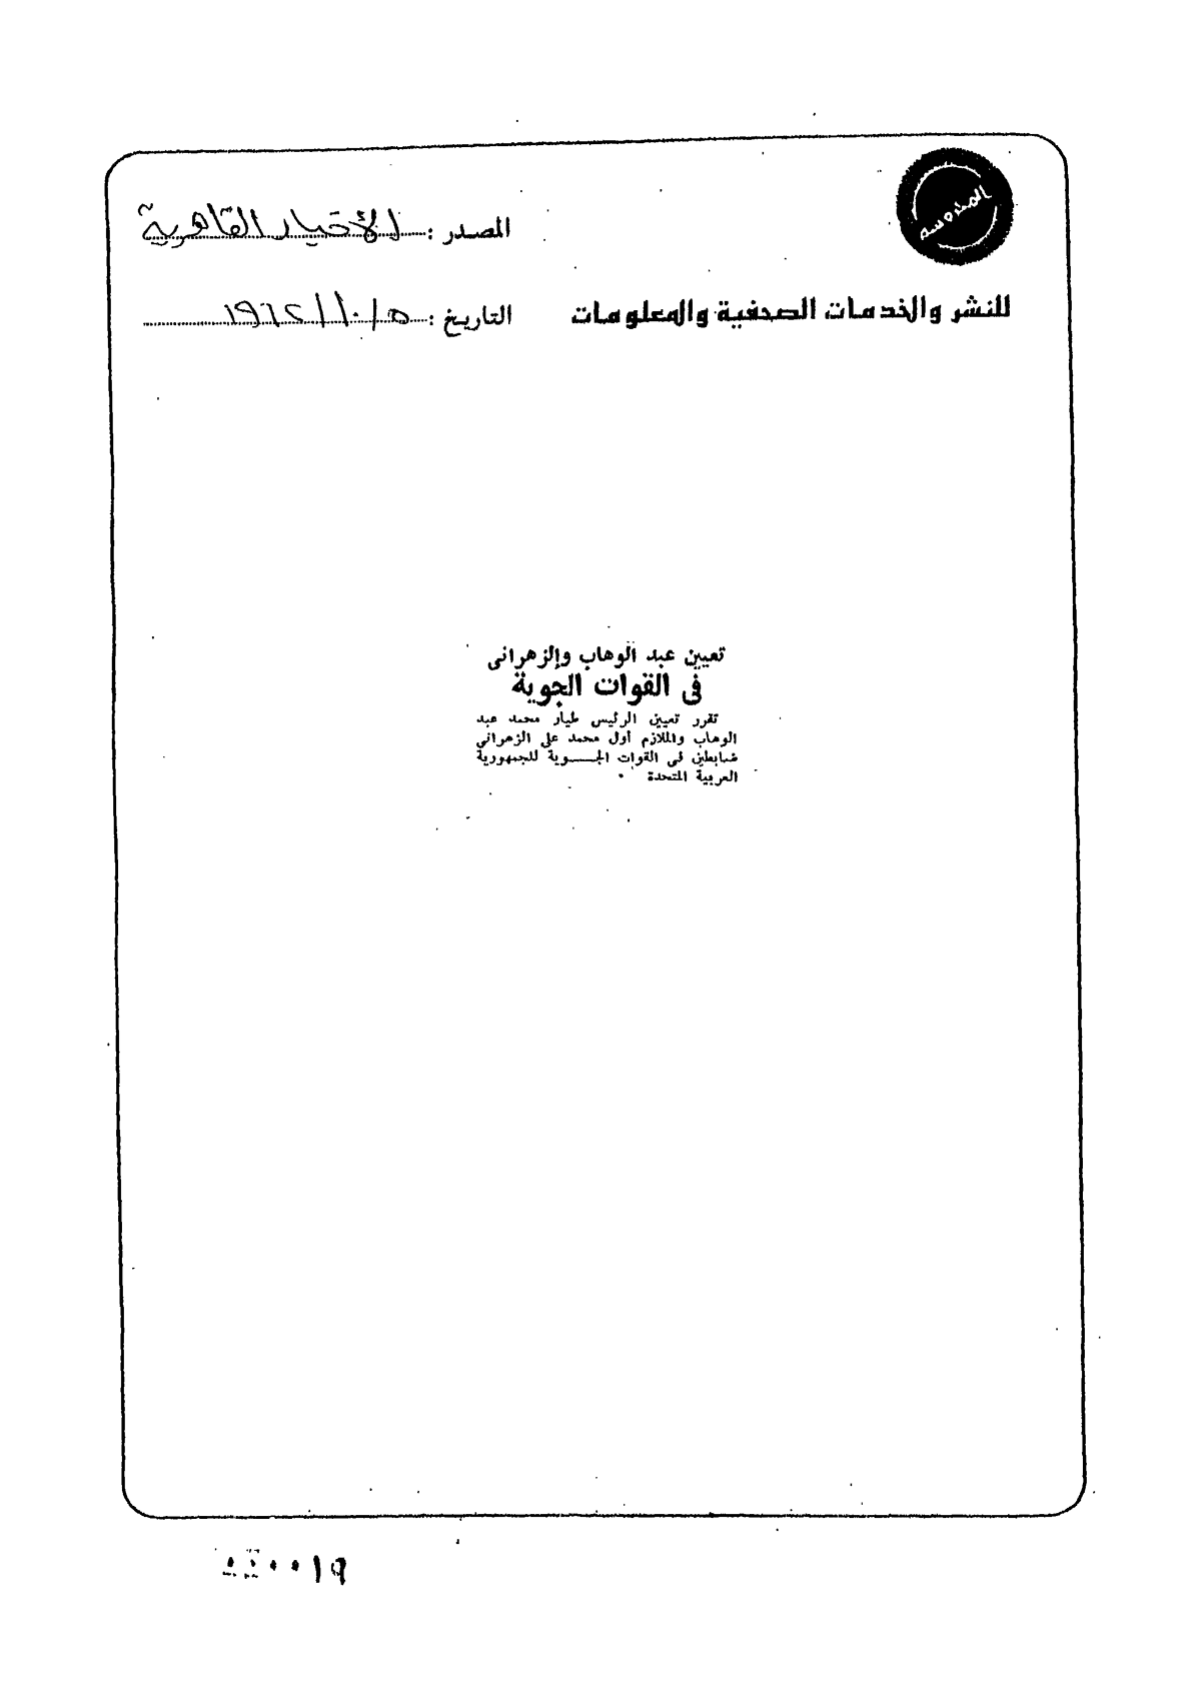 المحروسه
المصدر : الأخبار القاهرية
للنشر والخدمات الصحفية والمعلومات
التاريخ : ٥/١٠/١٩٦٢
تعيين عبد الوهاب والزهرانى
فى القوات الجوية
تقرر تعيين الرئيس طيار محمد عبد
الوهاب والملازم أول محمد على الزهرانى
ضابطين فى القوات الجـــوية للجمهورية
العربية المتحدة .